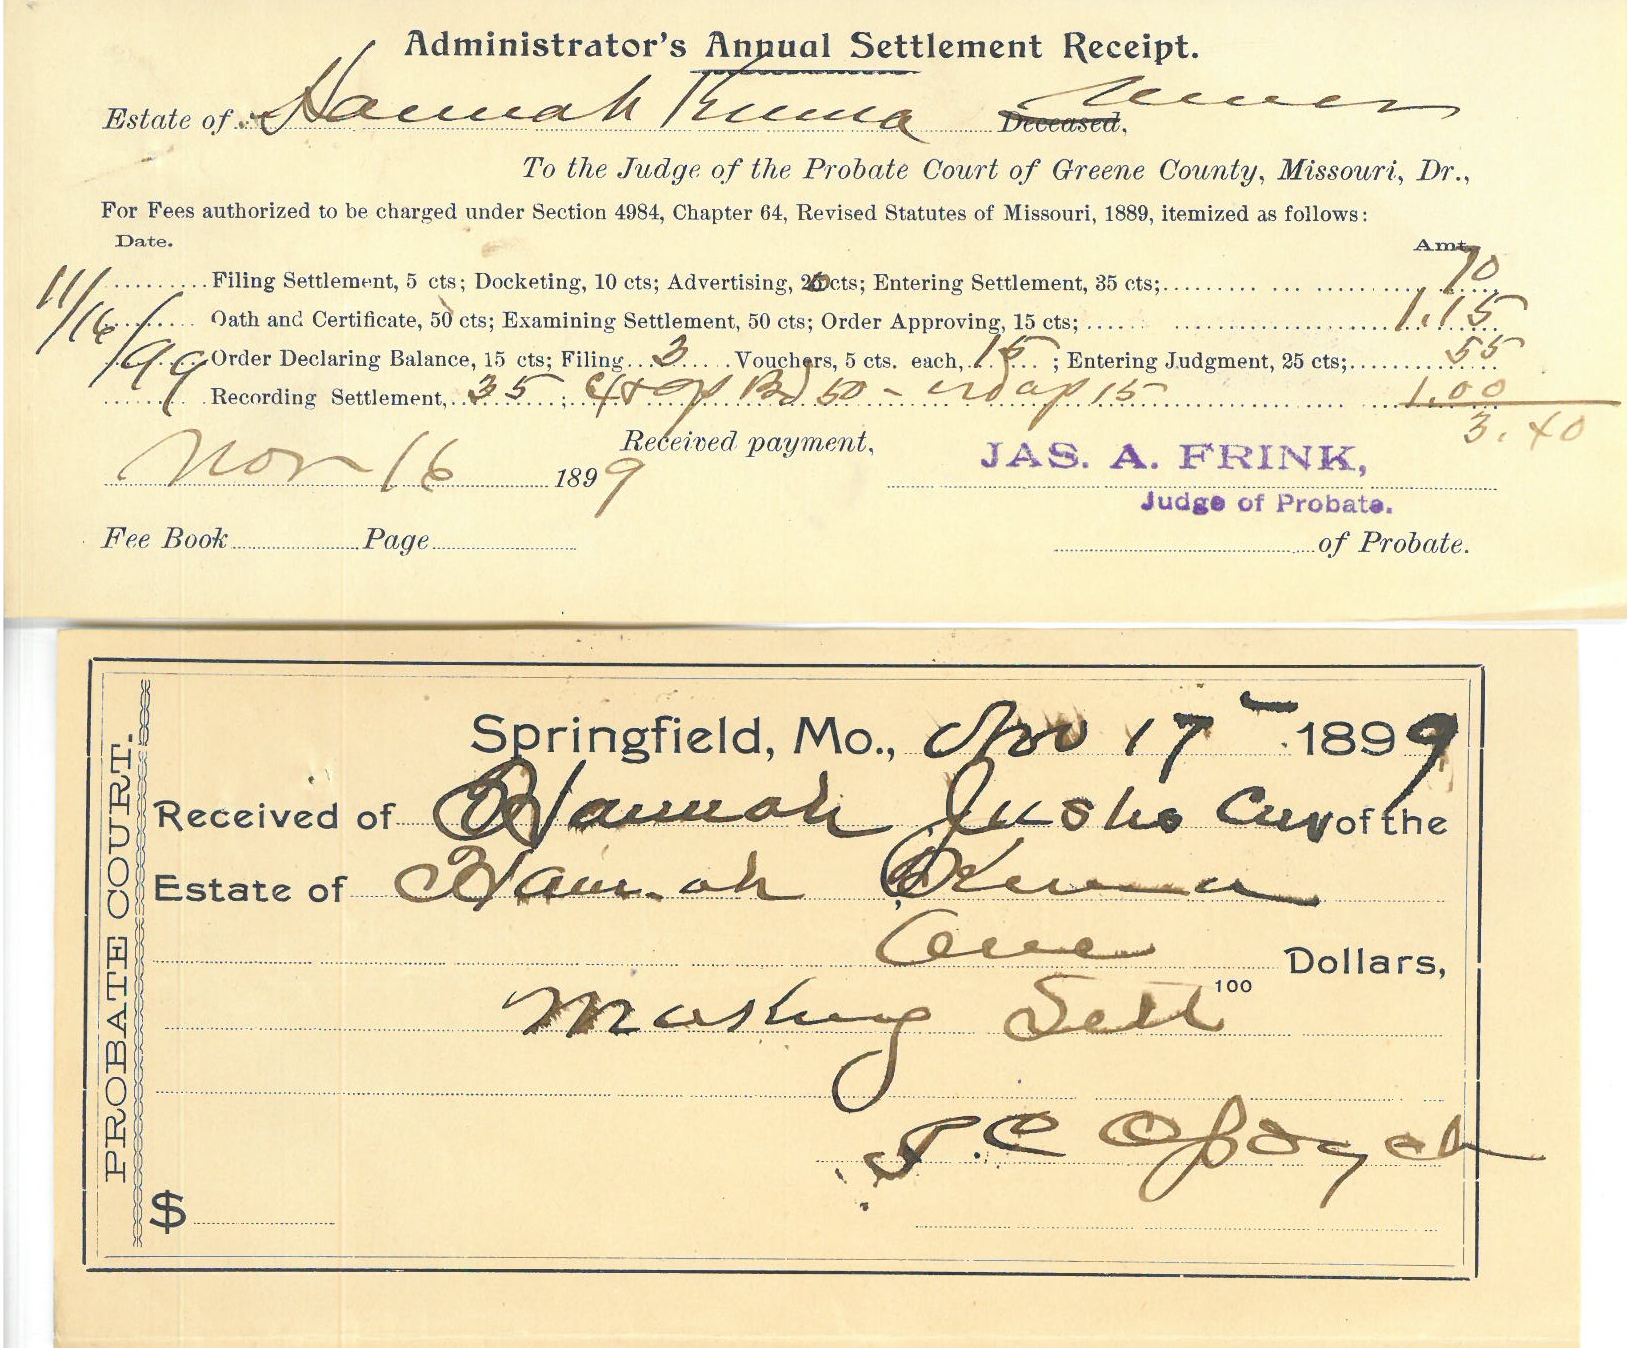 Administrator's Annual Settlement Receipt.
Estate of Hannah Kenna Deceased,
To the Judge of the Probate Court of Greene County, Missouri, Dr.,
For Fees authorized to be charged under Section 4984, Chapter 64, Revised Statutes of Missouri, 1889, itemized as follows:
Date. Amt.
11/16/99 Filing Settlement, 5 cts; Docketing, 10 cts; Advertising, 20 cts; Entering Settlement, 35 cts; 70
Oath and Certificate, 50 cts; Examining Settlement, 50 cts; Order Approving, 15 cts; 1.15
Order Declaring Balance, 15 cts; Filing 3 Vouchers, 5 cts. each, 15; Entering Judgment, 25 cts; 55
Recording Settlement, 35; Bd 50 - ap 15 1.00
3.40
Received payment,
Nov 16 1899
JAS. A. FRINK,
Judge of Probate.
Fee Book Page of Probate.
PROBATE COURT.
Springfield, Mo., Nov 17 1899
Received of Hannah Cur of the
Estate of Hannah Kenna
One Dollars,
100
Making Settl
$